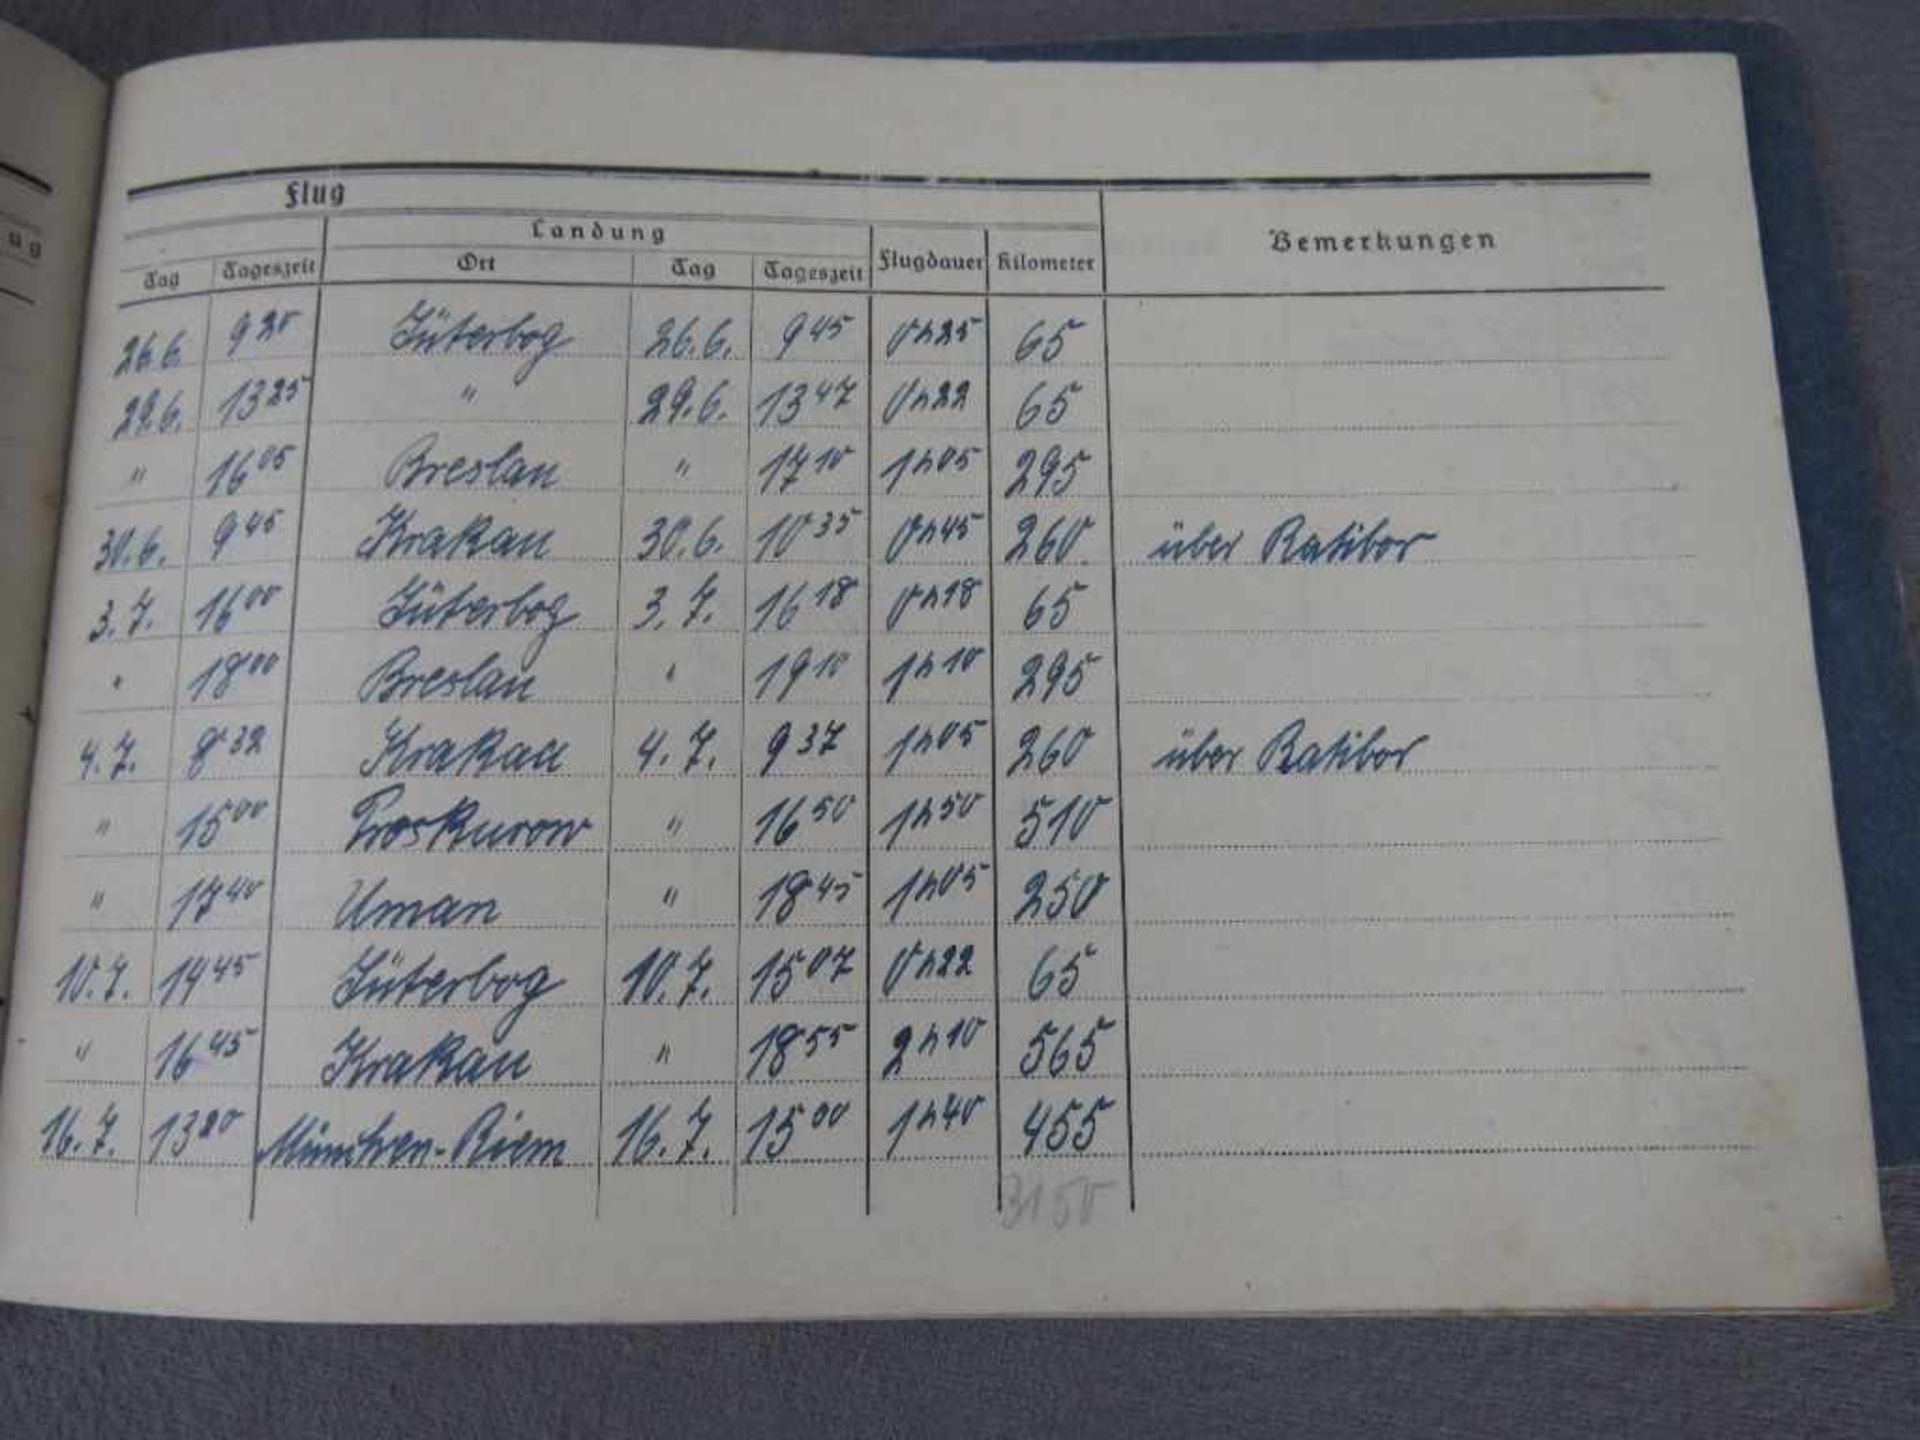 ug
Flug
Landung
Flugdauer Kilometer Bemerkungen
Tag Tageszeit Ort Tag Tageszeit
26.6. 9 20 Jüterbog 26.6. 9 45 0h25 65
29.6. 13 25 " 29.6. 13 47 0h22 65
" 16 05 Breslau " 17 10 1h05 295
30.6. 9 45 Krakau 30.6. 10 35 0h45 260 über Ratibor
3.7. 16 00 Jüterbog 3.7. 16 18 0h18 65
" 18 00 Breslau " 19 10 1h10 295
4.7. 8 32 Krakau 4.7. 9 37 1h05 260 über Ratibor
" 15 00 Proskurow " 16 50 1h50 510
" 17 40 Uman " 18 45 1h05 250
10.7. 14 45 Jüterbog 10.7. 15 07 0h22 65
" 16 45 Krakau " 18 55 2h10 565
16.7. 13 20 München-Riem 16.7. 15 00 1h40 455
3150